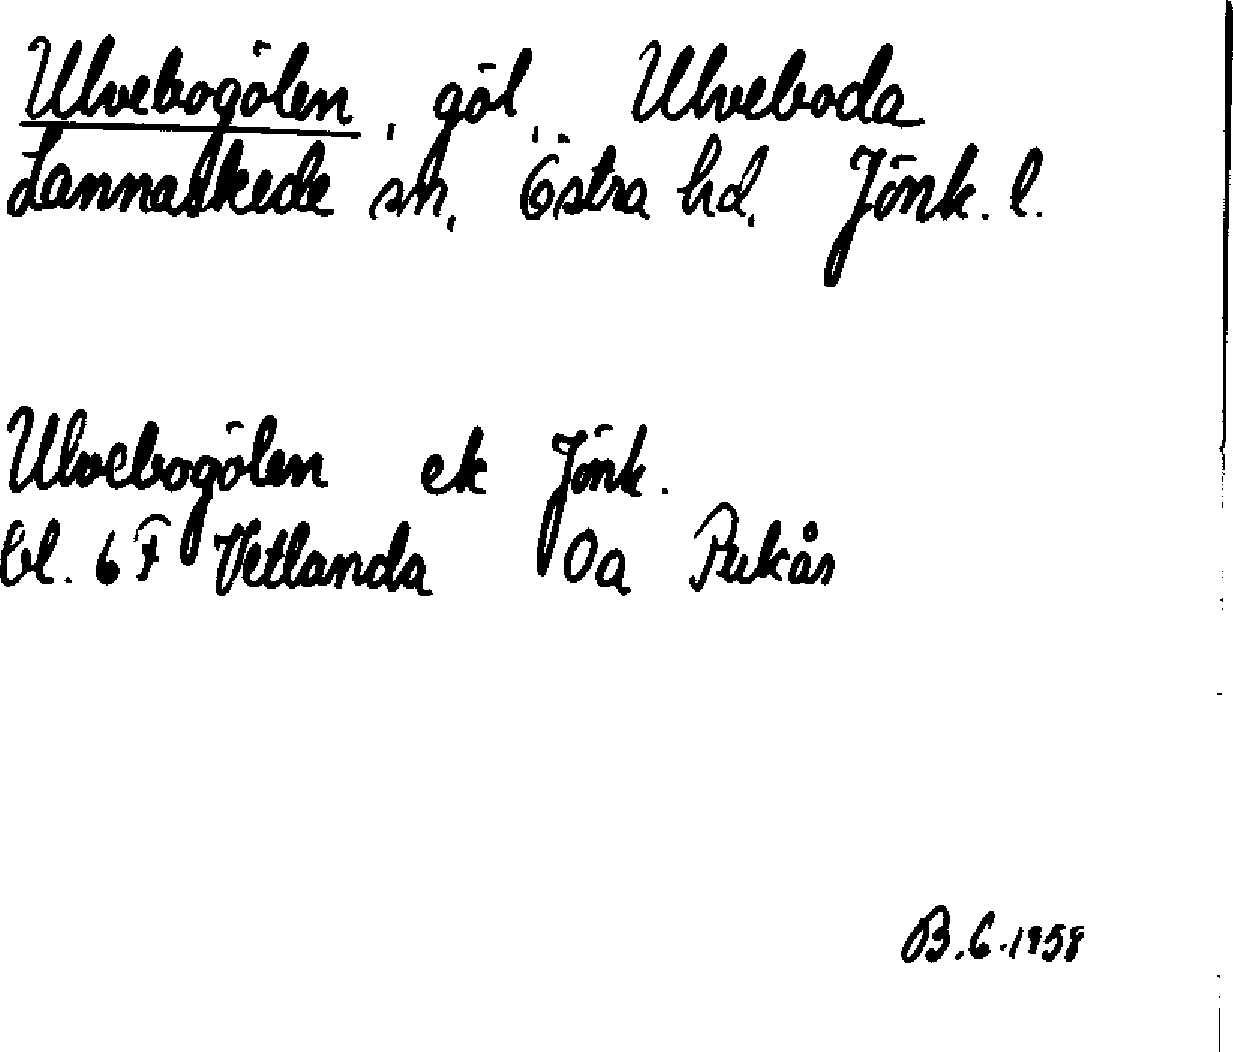 Ulvebogölen, göl, Ulveboda
Lannaskede sn, Östra hd, Jönk. l.
Ulvebogölen ek Jönk.
bl. 6 F Vetlanda Oa Pukås
B.G. 1958